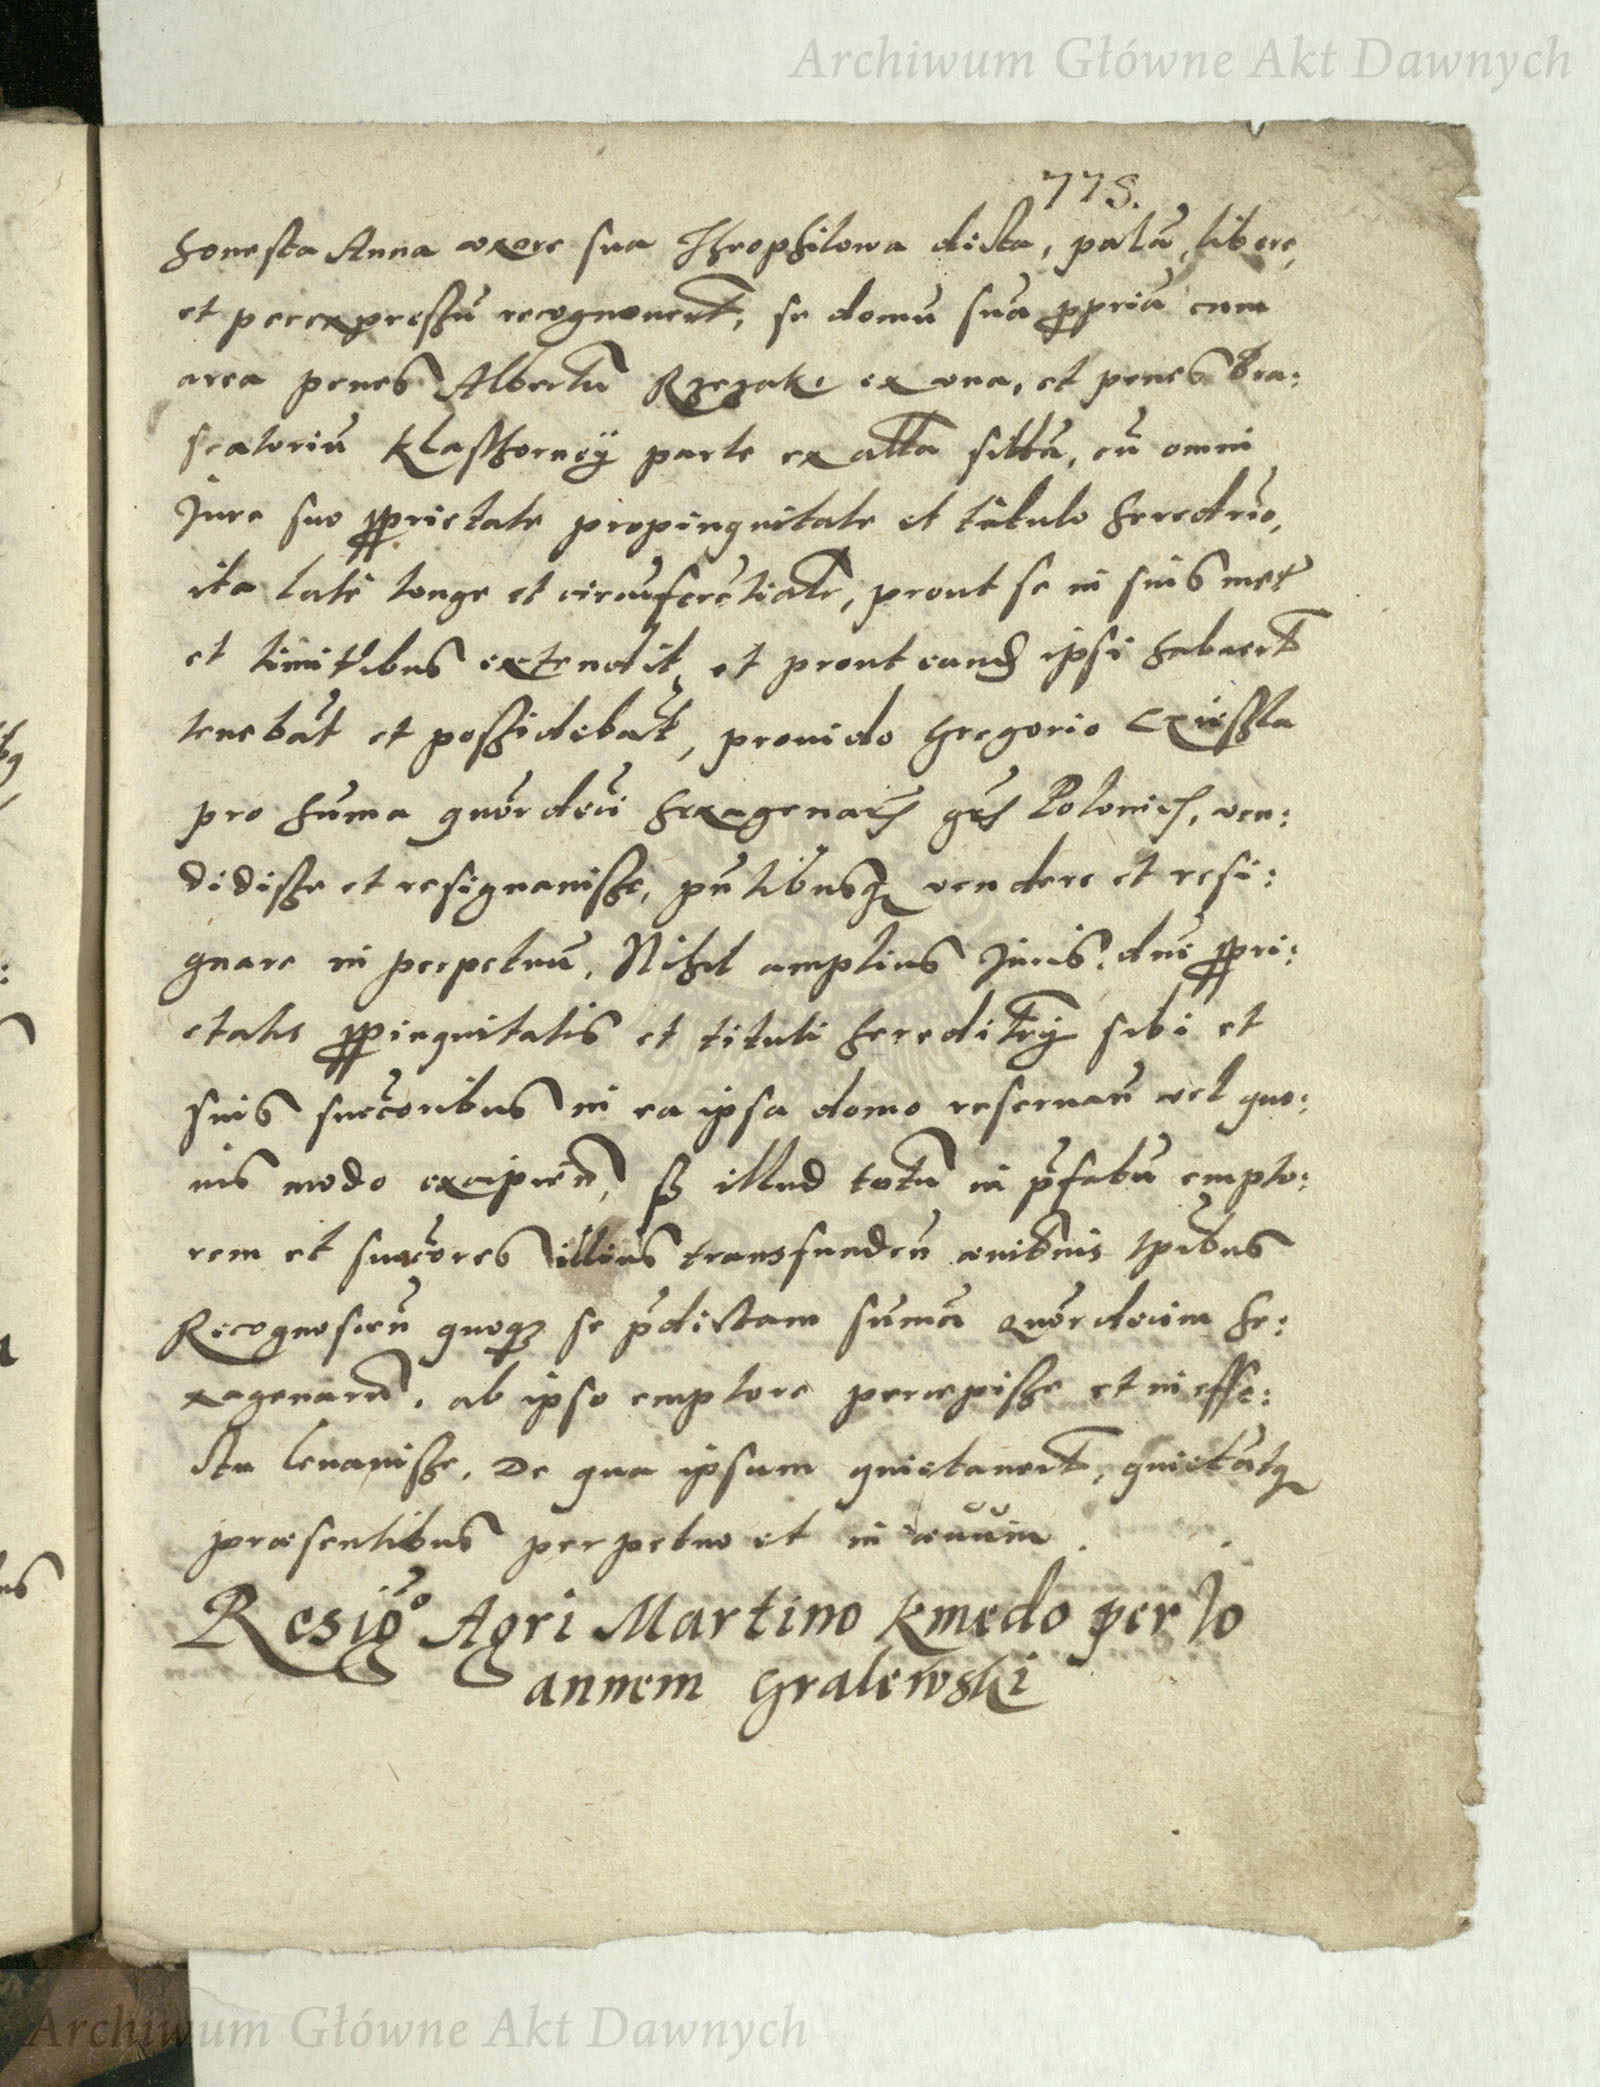 Archiwum Główne Akt Dawnych
775.
honesta Anna uxore sua Theophilowa dicta, palā, libere,
et perexpressū recognouerūt, se domū suā ppriā cum
area penes Albertū Rzezak ex una, et penes bra:
seatoriū Klasthorny parte ex alta sitta, cū omni
Jure suo pprietate propinquitate et titulo heredrio,
ita late longe et circūferētialr, prout se in suis met
et limitibus extendit, et prout eand ipsi habuert
tenebāt et possidebāt, prouido Gregorio
pro suma quordeci sexagenar grs Polonic, ven:
didisse et resignauisse, pntibusq vendere et resi:
gnare in perpetuū, Nihil amplius Juris dnii ppri:
etatis ppinquitatis et tituli hereditry sibi et
suis succoribus in ea ipsa domo reseruan vel quo:
uis modo excipien, sed illud totū in pfatū empto:
rem et succores illius transfunden tpibus
Recognoscen quoq se pdictam sumā quordecim se:
xagenarū, ab ipso emptore percepisse et in effe:
ctu leuauisse, De qua ipsum quietauert, quietātq
præsentibus perpetuo et in ævum.
Resigō Agri Martino Kmedo per Jo
annem Gralewski
Archiwum Główne Akt Dawnych